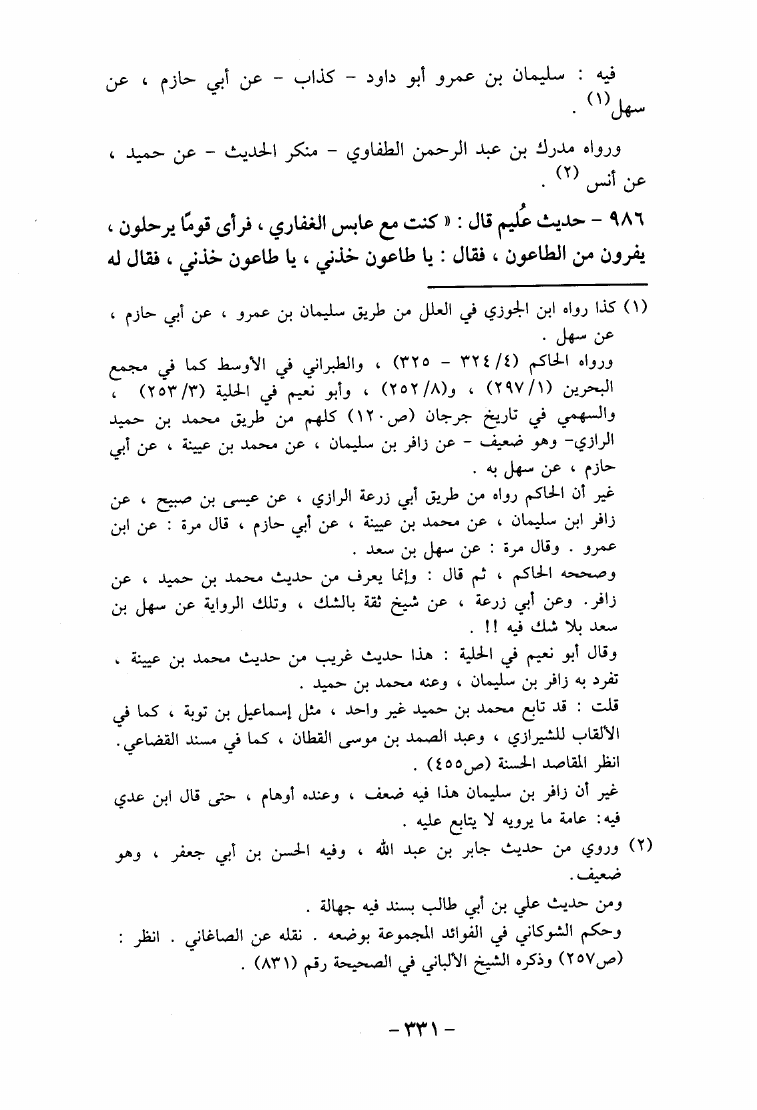 فيه : سليمان بن عمرو أبو داود – كذاب – عن أبي حازم ، عن
سهل(١) .
ورواه مدرك بن عبد الرحمن الطفاوي – منكر الحديث – عن حميد ،
عن أنس (٢) .
٩٨٦ – حديث عُليم قال : « كنت مع عابس الغفاري ، فرأى قومًا يرحلون ،
يفرون من الطاعون ، فقال : يا طاعون خذني ، يا طاعون خذني ، فقال له
(١) كذا رواه ابن الجوزي في العلل من طريق سليمان بن عمرو ، عن أبي حازم ،
عن سهل .
ورواه الحاكم (٣٢٤/٤ – ٣٢٥) ، والطبراني في الأوسط كما في مجمع
البحرين (٢٩٧/١) ، و(٢٥٢/٨) ، وأبو نعيم في الحلية (٢٥٣/٣) ،
والسهمي في تاريخ جرجان (ص١٢٠) كلهم من طريق محمد بن حميد
الرازي– وهو ضعيف – عن زافر بن سليمان ، عن محمد بن عيينة ، عن أبي
حازم ، عن سهل به .
غير أن الحاكم رواه من طريق أبي زرعة الرازي ، عن عيسى بن صبيح ، عن
زافر ابن سليمان ، عن محمد بن عيينة ، عن أبي حازم ، قال مرة : عن ابن
عمرو . وقال مرة : عن سهل بن سعد .
وصححه الحاكم ، ثم قال : وإنما يعرف من حديث محمد بن حميد ، عن
زافر. وعن أبي زرعة ، عن شيخ ثقة بالشك ، وتلك الرواية عن سهل بن
سعد بلا شك فيه !! .
وقال أبو نعيم في الحلية : هذا حديث غريب من حديث محمد بن عيينة ،
تفرد به زافر بن سليمان ، وعنه محمد بن حميد .
قلت : قد تابع محمد بن حميد غير واحد ، مثل إسماعيل بن توبة ، كما في
الألقاب للشيرازي ، وعبد الصمد بن موسى القطان ، كما في مسند القضاعي.
انظر المقاصد الحسنة (ص٤٥٥) .
غير أن زافر بن سليمان هذا فيه ضعف ، وعنده أوهام ، حتى قال ابن عدي
فيه: عامة ما يرويه لا يتابع عليه .
(٢) وروي من حديث جابر بن عبد الله ، وفيه الحسن بن أبي جعفر ، وهو
ضعيف.
ومن حديث علي بن أبي طالب بسند فيه جهالة .
وحكم الشوكاني في الفوائد المجموعة بوضعه . نقله عن الصاغاني . انظر :
(ص٢٥٧) وذكره الشيخ الألباني في الصحيحة رقم (٨٣١) .
– ٣٣١ –